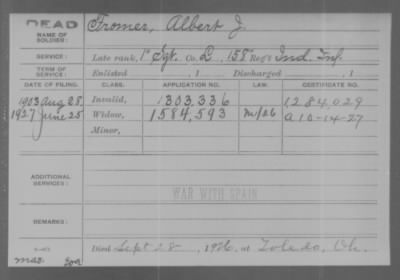 DEAD
NAME OF SOLDIER: Fromer, Albert J.
SERVICE: Late rank, 1" Sgt. Co. D, 158" Reg't Ind. Inf.
TERM OF SERVICE: Enlisted , 1 Discharged , 1
DATE OF FILING. CLASS. APPLICATION NO. LAW. CERTIFICATE NO.
1903 Aug 28. Invalid, 1303,336 1284,029
1927 June 25 Widow, 1584,593 m/26 a 10-14-27
Minor,
ADDITIONAL SERVICES:
WAR WITH SPAIN
REMARKS:
Died Sept 28, 1926, at Toledo, Oh.